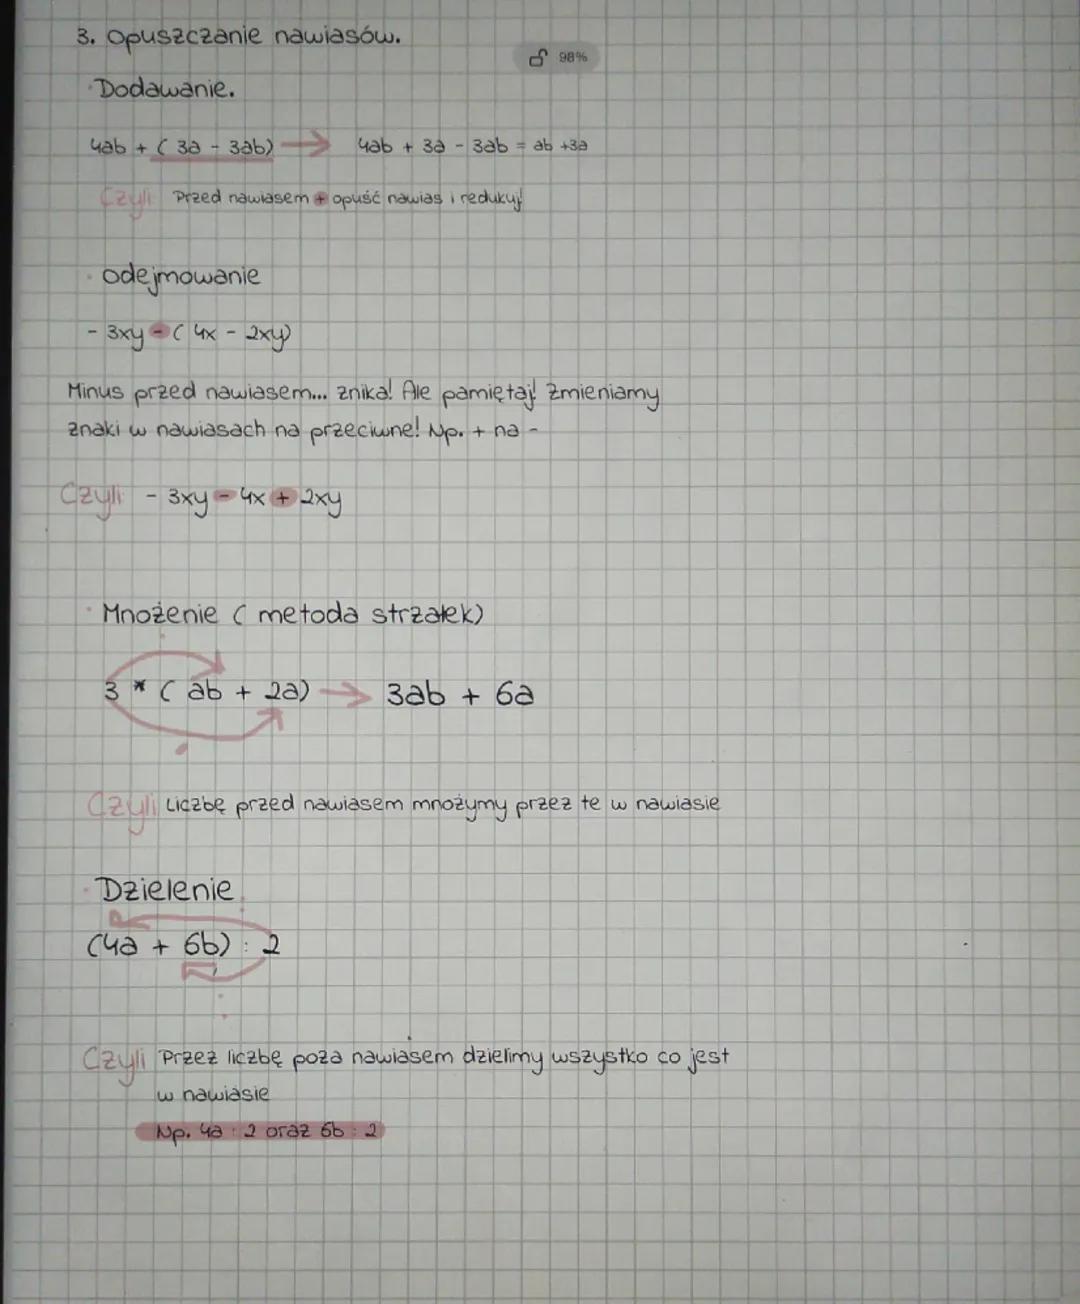 3. Opuszczanie nawiasów.
98%
· Dodawanie.
4ab + ( 3a - 3ab) → 4ab + 3a - 3ab = ab +3a
Czyli Przed nawiasem + opuść nawias i redukuj!
· odejmowanie
- 3xy - ( 4x - 2xy)
Minus przed nawiasem... znika! Ale pamiętaj! Zmieniamy
znaki w nawiasach na przeciwne! Np. + na -
Czyli - 3xy - 4x + 2xy
· Mnożenie ( metoda strzałek)
3 * ( ab + 2a) → 3ab + 6a
Czyli Liczbę przed nawiasem mnożymy przez te w nawiasie
· Dzielenie
(4a + 6b) : 2
Czyli Przez liczbę poza nawiasem dzielimy wszystko co jest
w nawiasie
Np. 4a : 2 oraz 6b : 2